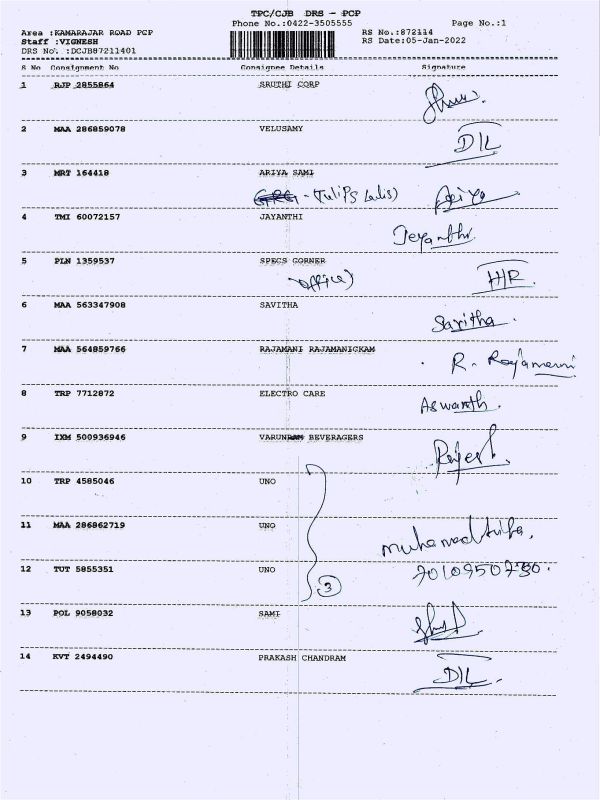 TPC/CJB DRS - PCP
Phone No.:0422-3505555 Page No.:1
Area :KAMARAJAR ROAD PCP RS No.:872114
Staff :VIGNESH RS Date:05-Jan-2022
DRS No. :DCJB87211401
S No Consignment No Consignee Details Signature
1 RJP 2855864 SRUTHI CORP
2 MAA 286859078 VELUSAMY
D/L
3 MRT 164418 ARIYA SAMI
(Tulips Ariya
4 TMI 60072157 JAYANTHI
Jeyanthi.
5 PLN 1359537 SPECS CORNER
office) H/R.
6 MAA 563347908 SAVITHA
Savitha.
7 MAA 564859766 RAJAMANI RAJAMANICKAM
R. Rajamani
8 TRP 7712872 ELECTRO CARE
Aswanth.
9 IXM 500936946 VARUNRAM BEVERAGERS
Rajesh.
10 TRP 4585046 UNO
11 MAA 286862719 UNO
12 TUT 5855351 UNO
3
13 POL 9058032 SAMI
14 KVT 2494490 PRAKASH CHANDRAM
D/L.